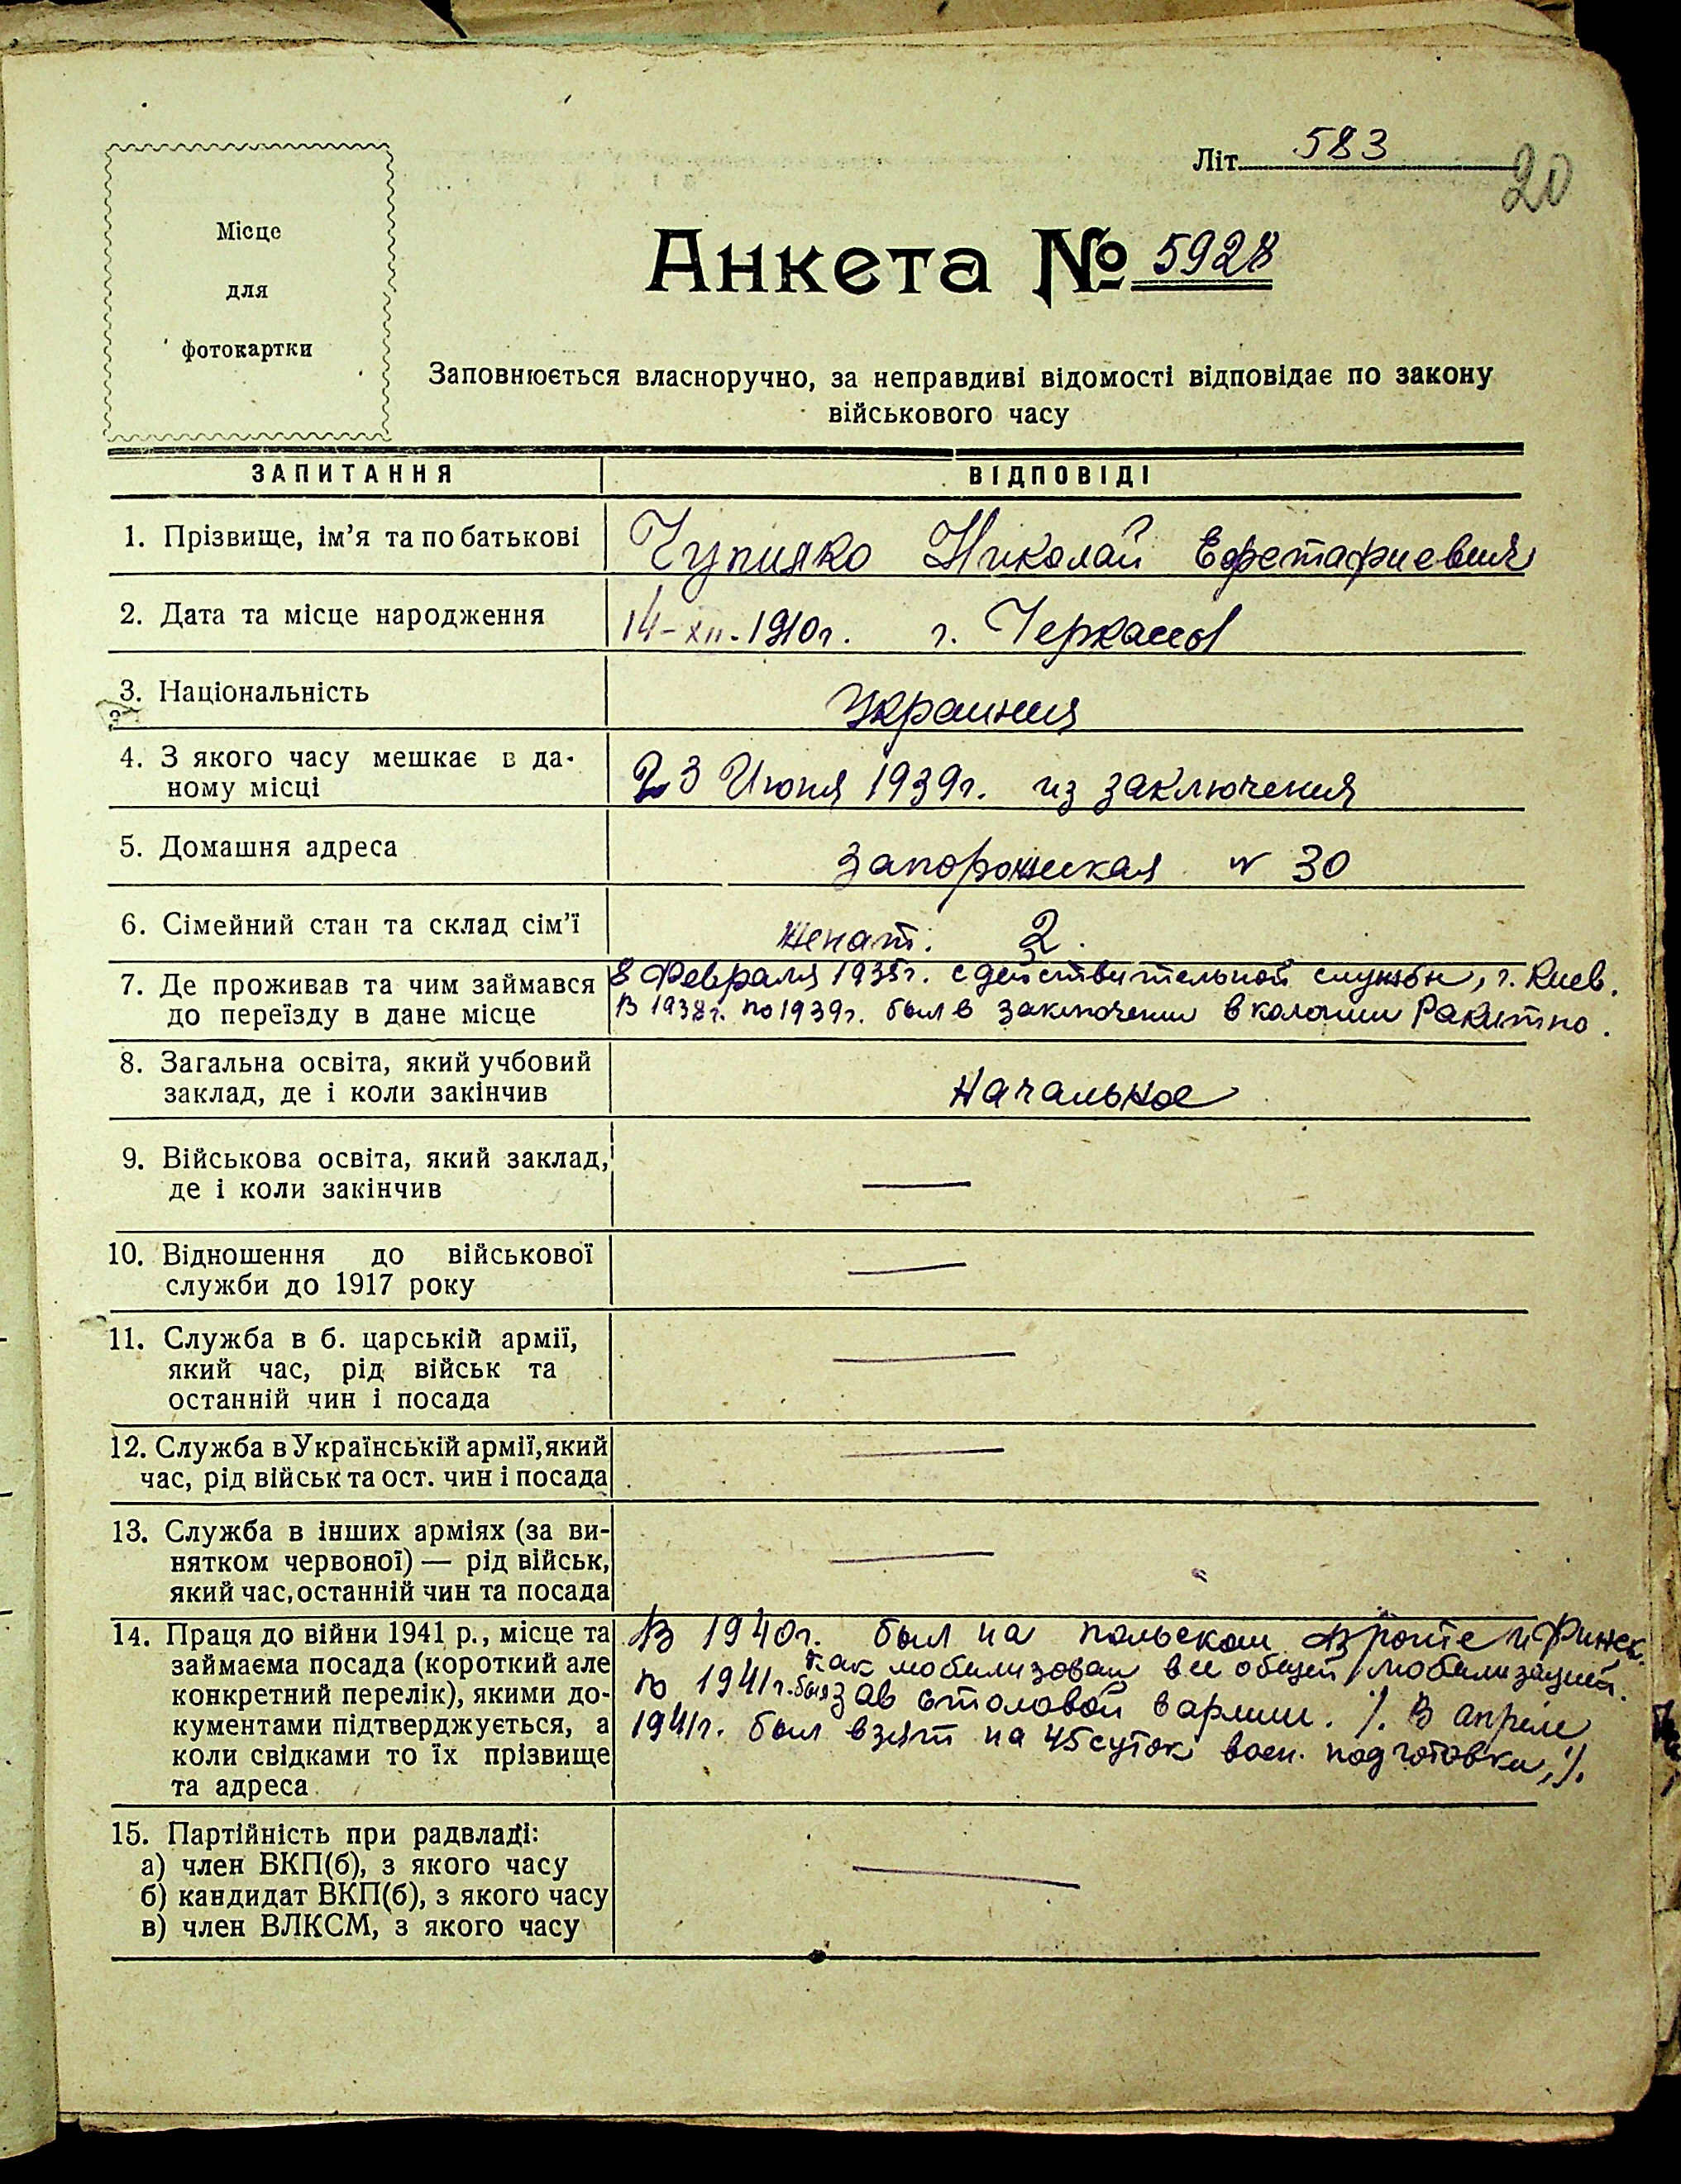 Літ. 583
20
Місце
для
фотокартки
Анкета № 5928
Заповнюється власноручно, за неправдиві відомості відповідає по закону
військового часу
ЗАПИТАННЯ ВІДПОВІДІ
1. Прізвище, ім'я та по батькові Николай
2. Дата та місце народження 14-XII-1910г. г. Черкассы
3. Національність Украинец
4. З якого часу мешкає в да-
ному місці 23 Июня 1939г. из заключения
5. Домашня адреса Запорожская № 30
6. Сімейний стан та склад сім'ї женат. 2.
7. Де проживав та чим займався 8 Февраля 1935г. с действительной службы, г. Киев.
до переїзду в дане місце В 1938г. по 1939г. был в заключении в колонии Ракитно.
8. Загальна освіта, який учбовий
заклад, де і коли закінчив Начальное
9. Військова освіта, який заклад, —
де і коли закінчив
10. Відношення до військової —
служби до 1917 року
11. Служба в б. царській армії, —
який час, рід військ та
останній чин і посада
12. Служба в Українській армії, який —
час, рід військ та ост. чин і посада
13. Служба в інших арміях (за ви-
нятком червоної) — рід військ, —
який час, останній чин та посада
14. Праця до війни 1941 р., місце та
займаєма посада (короткий але
конкретний перелік), якими до-
кументами підтверджується, а
коли свідками то їх прізвище
та адреса
В 1940г. был на польском фронте и Финск.
как мобилизован общей мобилизацией.
по 1941г. был зав столовой в армии. /. В апреле
1941г. был взят на 45 суток воен. подготовки, /.
15. Партійність при радвладі:
а) член ВКП(б), з якого часу —
б) кандидат ВКП(б), з якого часу
в) член ВЛКСМ, з якого часу